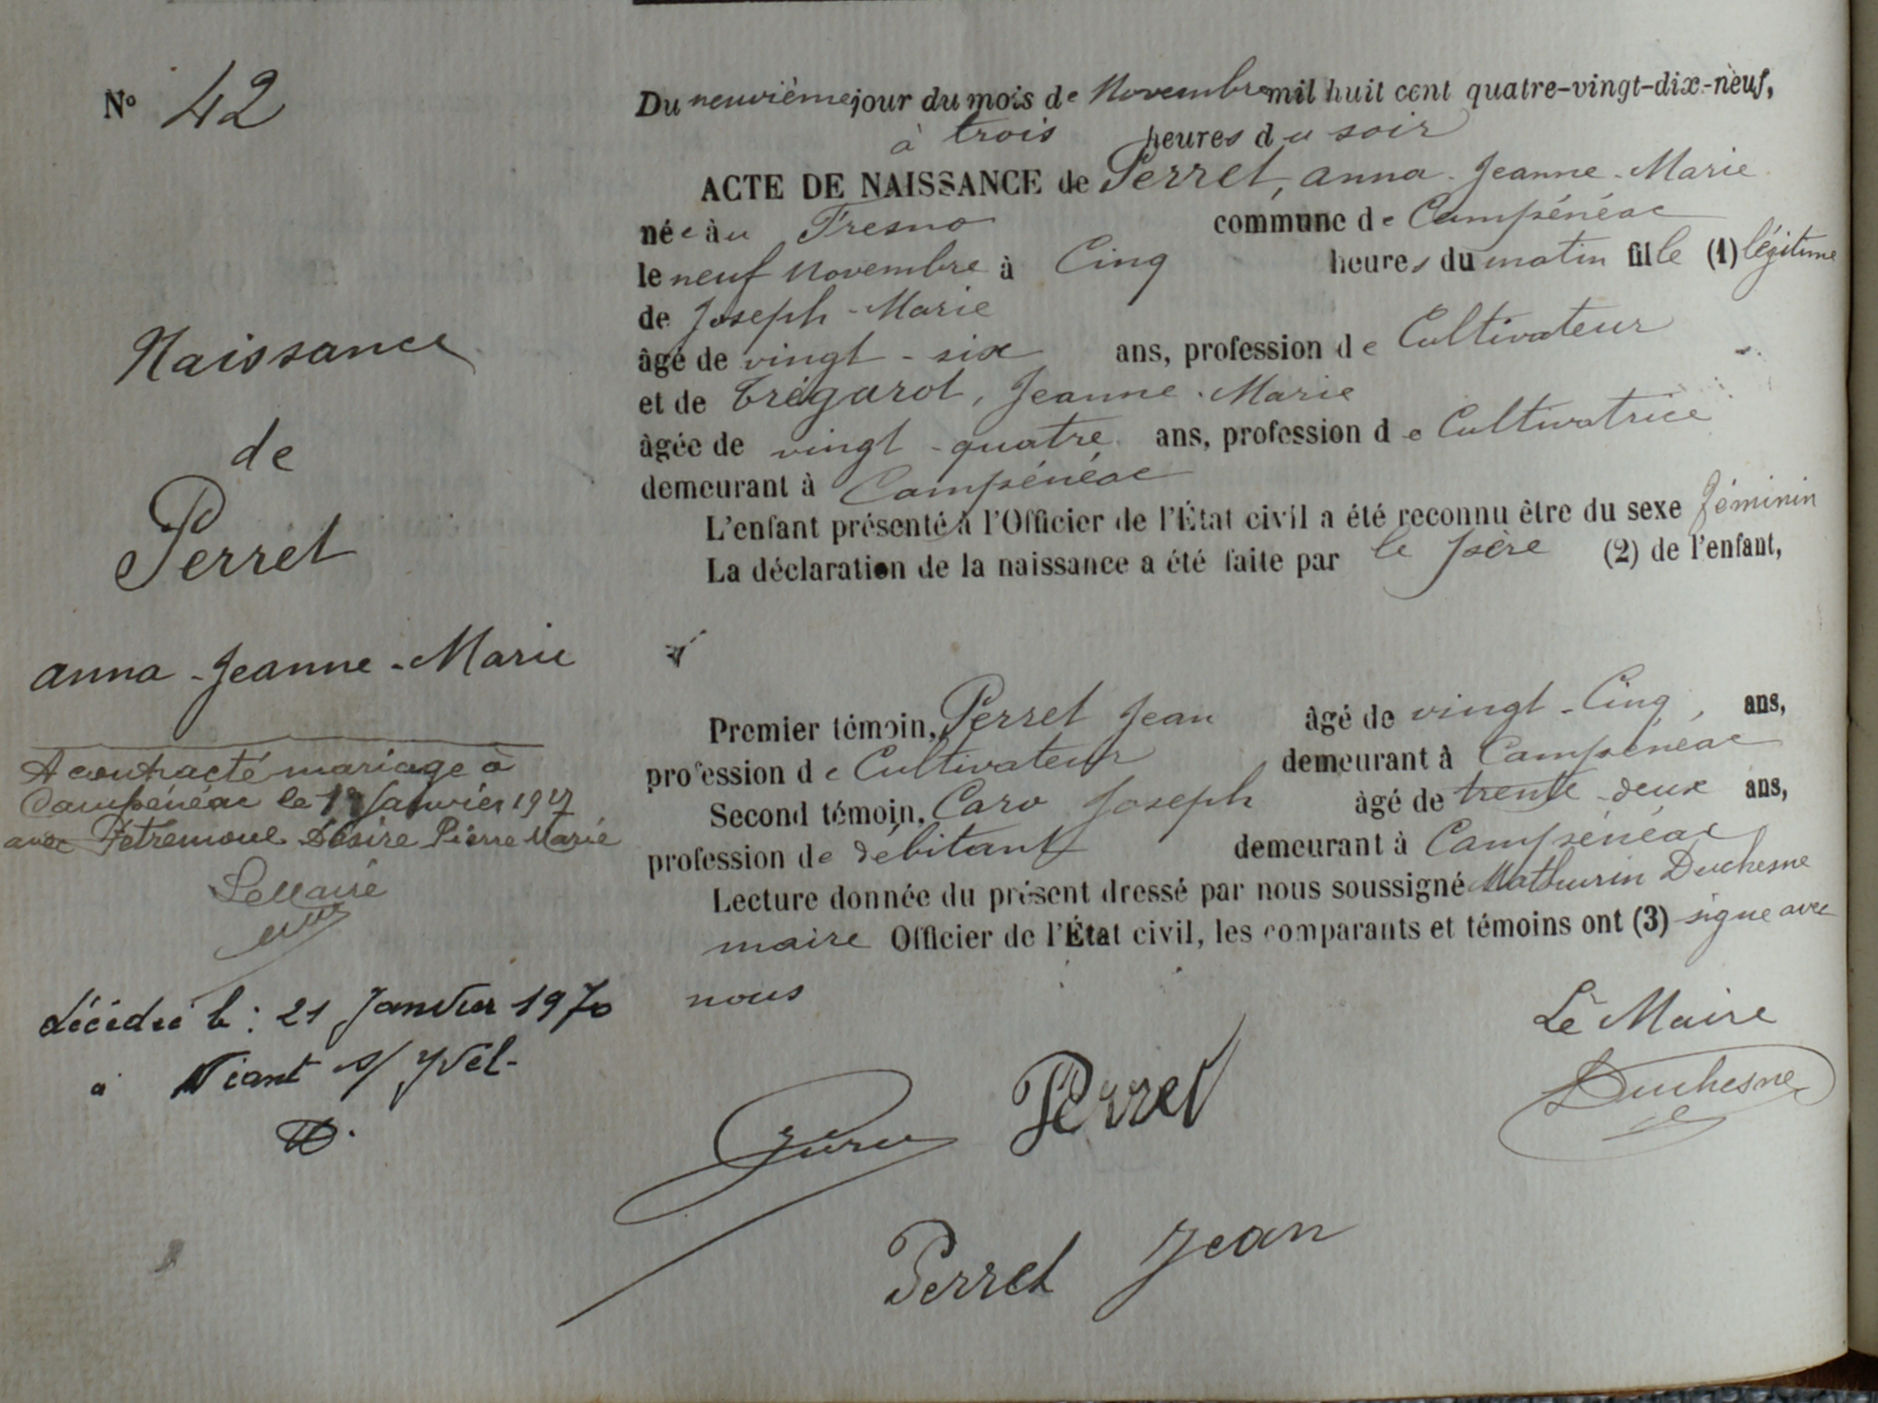 N° 42
Naissance
de
Perret
anna - Jeanne - Marie
A contracté mariage à
Campénéac le Janvier 1927
avec Fetremoul Désiré Pierre Marie
Le Maire
décédée le : 21 Janvier 1970
à Néant s/ Yvel-
Du neuvième jour du mois de Novembre mil huit cent quatre-vingt-dix-neuf,
à trois heures du soir
ACTE DE NAISSANCE de Perret, anna - Jeanne - Marie
née au Fresno commune de Campénéac
le neuf Novembre à Cinq heures du matin fille (1) légitime
de Joseph - Marie
âgé de vingt - six ans, profession de Cultivateur
et de Trégarot, Jeanne - Marie
âgée de vingt - quatre ans, profession de Cultivatrice
demeurant à Campénéac
L'enfant présenté à l'Officier de l'État civil a été reconnu être du sexe féminin
La déclaration de la naissance a été faite par le père (2) de l'enfant,
Premier témoin, Perret Jean âgé de vingt - Cinq, ans,
profession de Cultivateur demeurant à Campénéac
Second témoin, Caro Joseph âgé de trente - deux ans,
profession de débitant demeurant à Campénéac
Lecture donnée du présent dressé par nous soussigné Mathurin Duchesne
maire Officier de l'État civil, les comparants et témoins ont (3) signé avec
nous
Le Maire
Duchesne
Perret
Perret Jean